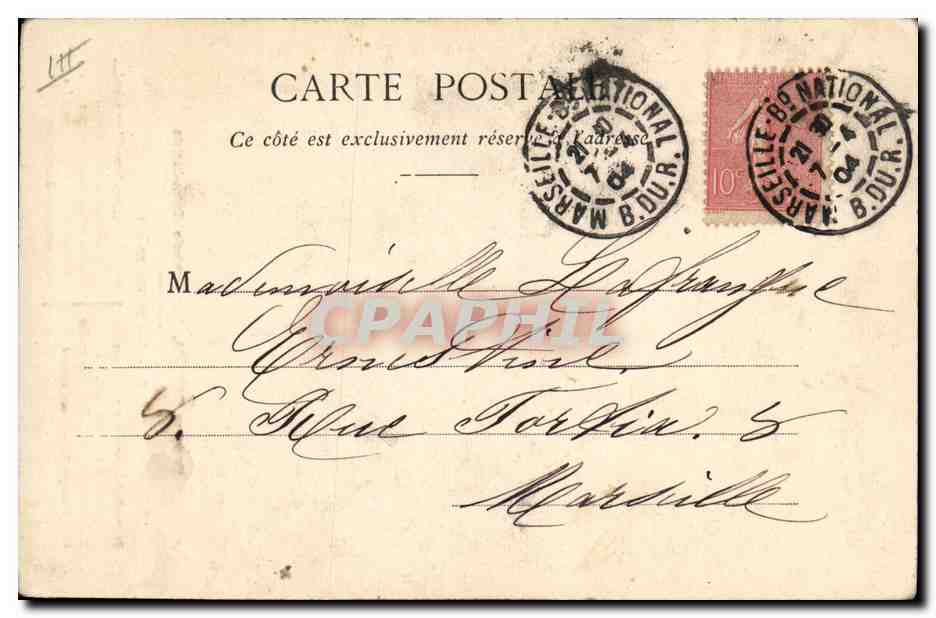 CARTE POSTALE
Ce côté est exclusivement réservé à l'adresse
MARSEILLE-Bd NATIONAL
21 7 04
B. DU R.
10c
MARSEILLE-Bd NATIONAL
21 7 04
B. DU R.
Mademoiselle Lafranque
CPAPHIL
Ernestine
8. Rue Fortia. 8
Marseille